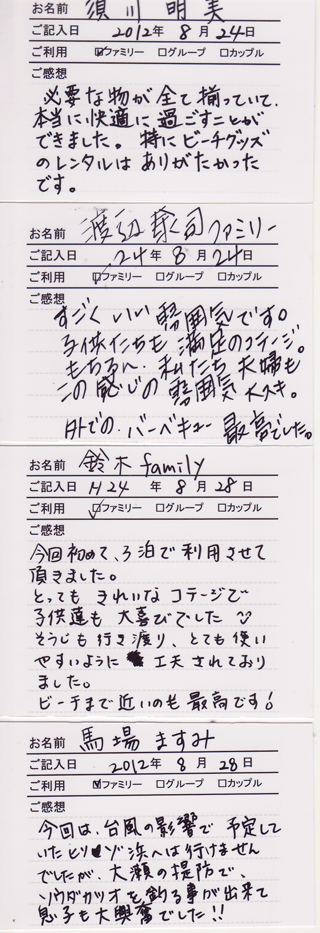 お名前 須川 明美
ご記入日 2012年 8月 24日
ご利用 ☑ファミリー □グループ □カップル
ご感想
必要な物が全て揃っていて、
本当に快適に過ごすことが
できました。特にビーチグッズ
のレンタルは ありがたかった
です。
お名前 渡辺 ファミリー
ご記入日 24年 8月 24日
ご利用 ☑ファミリー □グループ □カップル
ご感想
すごく いい 雰囲気です。
子供たちも 満足のコテージ。
もちろん、私たち 夫婦も
この感じの 雰囲気 大スキ。
外での バーベキュー 最高でした。
お名前 鈴木 family
ご記入日 H24年 8月 28日
ご利用 ☑ファミリー □グループ □カップル
ご感想
今回初めて、3泊で利用させて
頂きました。
とっても きれいな コテージで
子供達も 大喜びでした
そうじも行き渡り、とても使い
やすいように 工夫されており
ました。
ビーチまで近いのも 最高です!
お名前 馬場 ますみ
ご記入日 2012年 8月 28日
ご利用 ☑ファミリー □グループ □カップル
ご感想
今回は、台風の影響で 予定して
いたヒリゾ浜へは行けません
でしたが、大瀬の堤防で、
ソウダガツオを釣る事が出来て
息子も大興奮でした!!